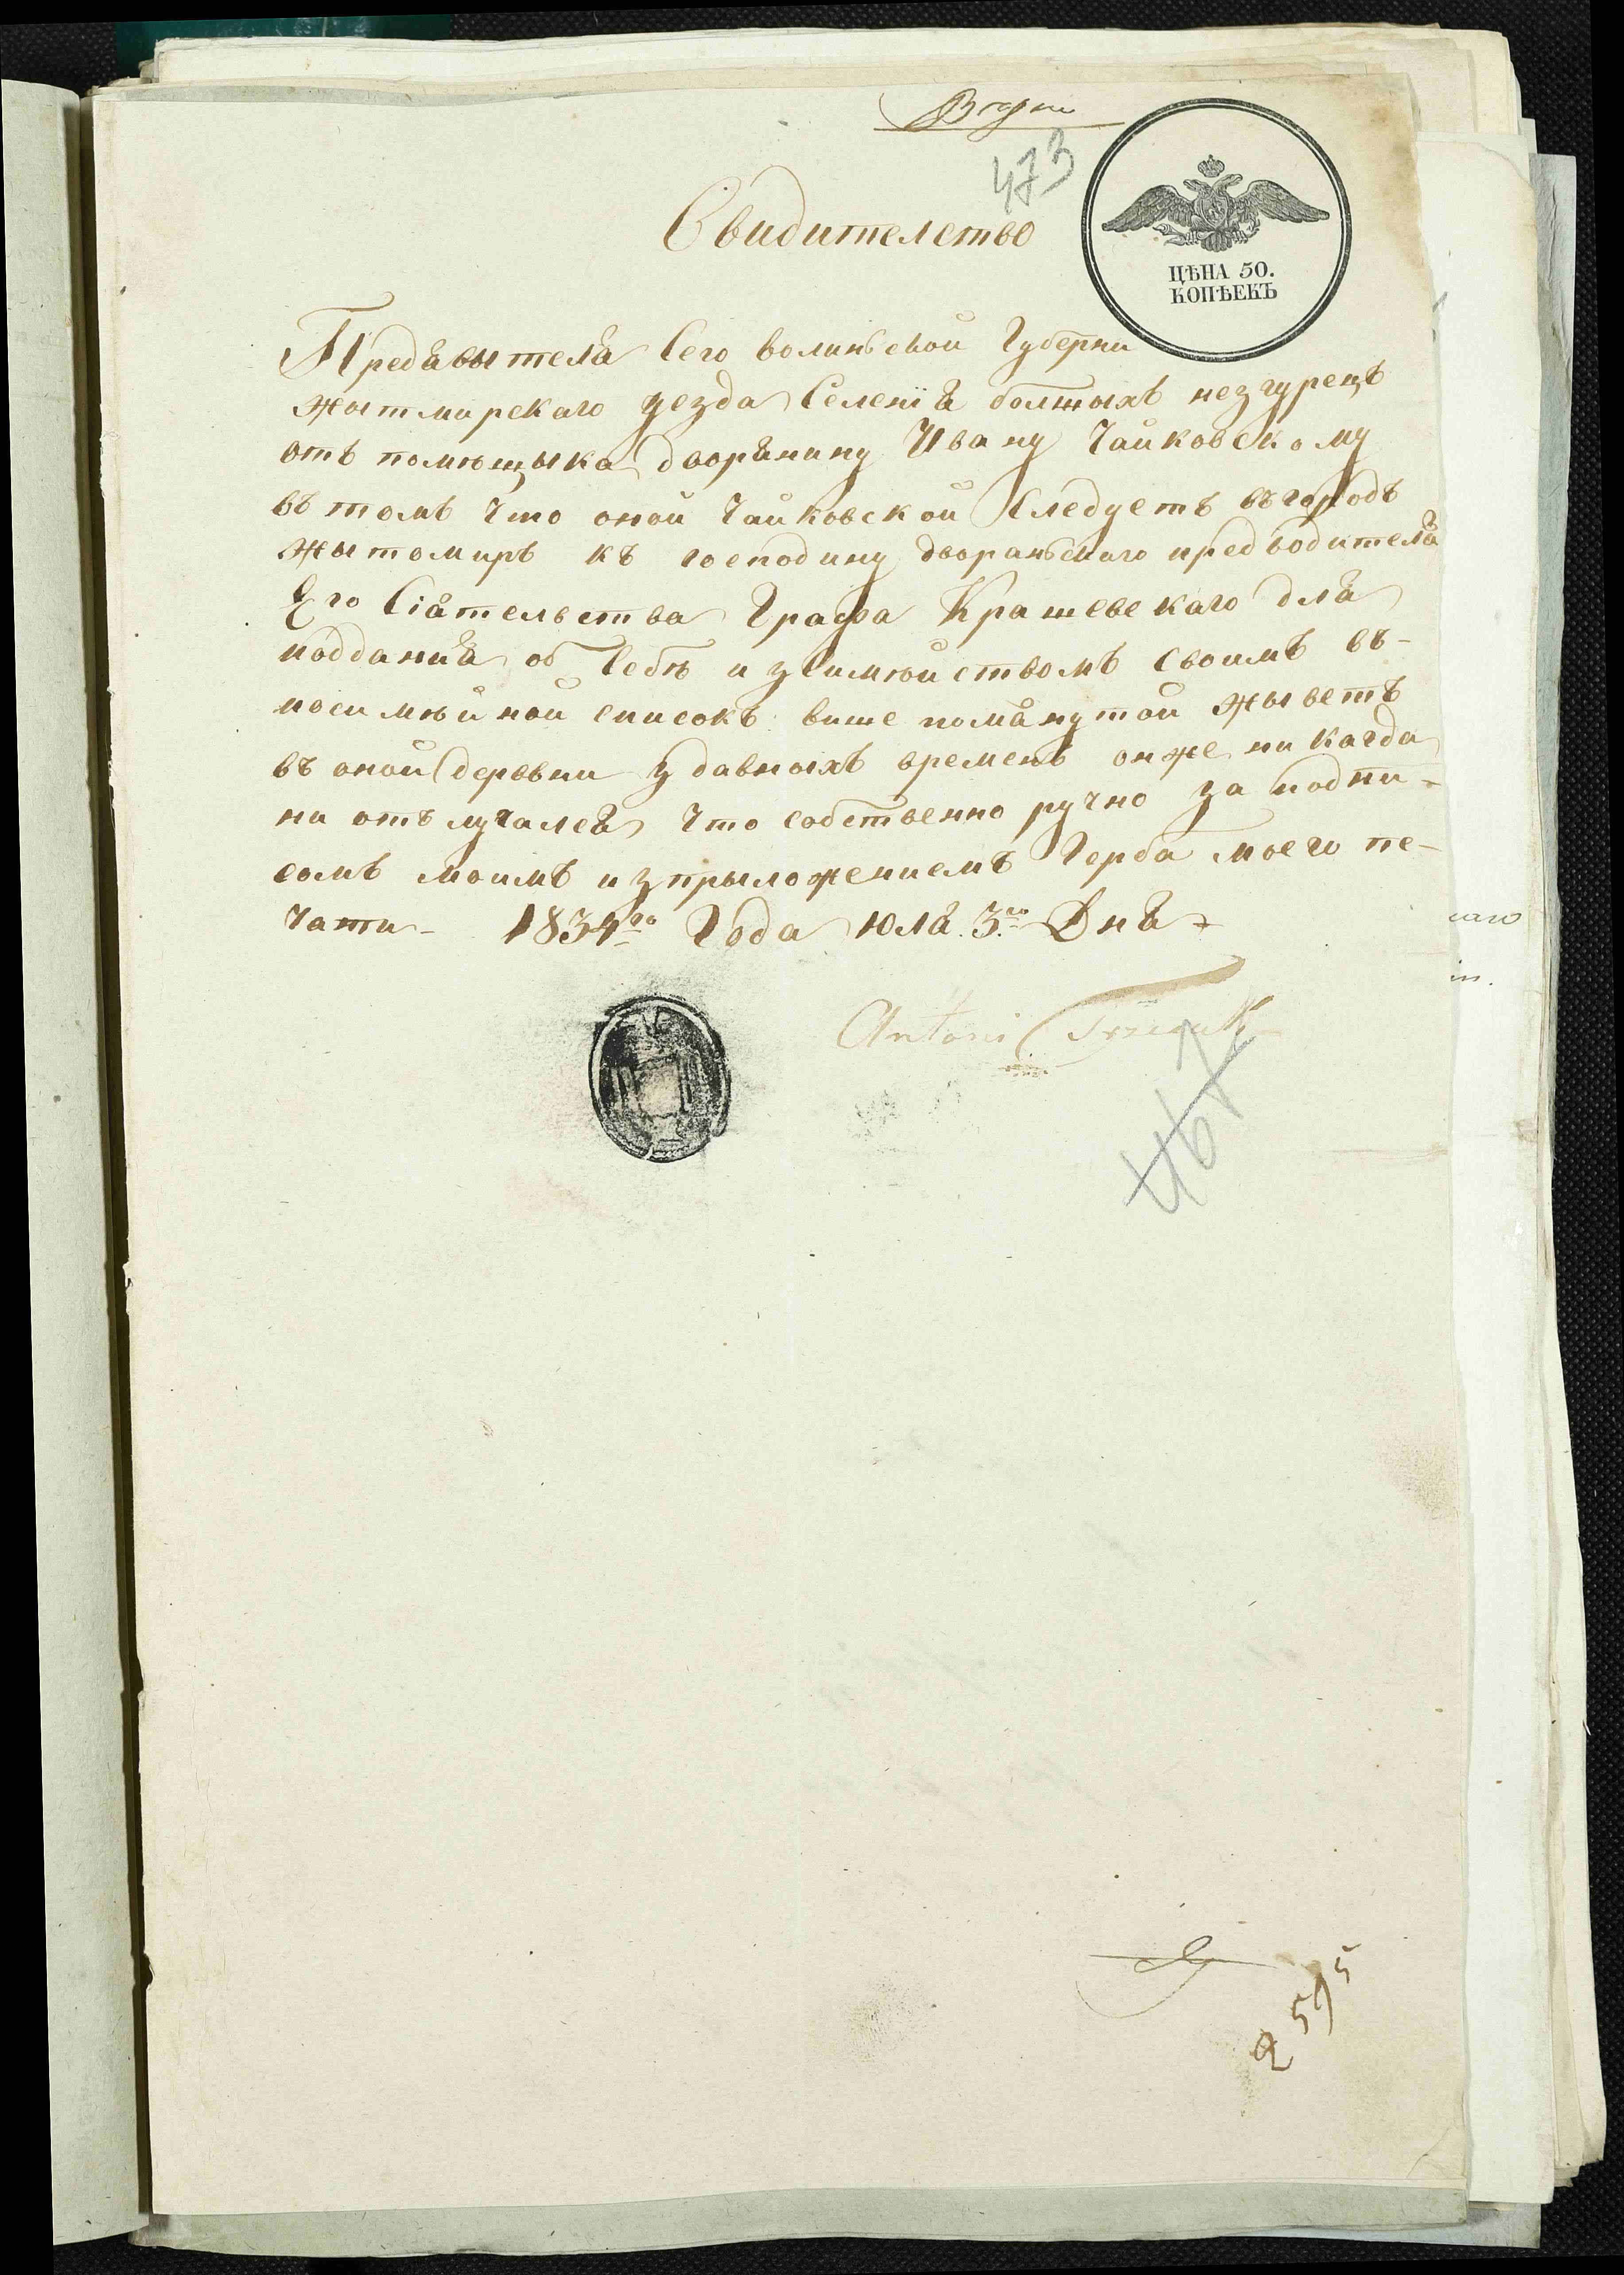 473
Свидителство
ЦѢНА 50.
КОПѢЕКЪ
Предавытеля Сего волинской Губерни
жытмирскаго уезда Селенія болшыхъ незгурецъ
отъ помѣщыка дворянину Ивану Чайковскому
въ томъ что оной Чайковской Следуетъ въ городъ
жытомиръ къ господину дворанскаго предводителя
Его Сіятельства Графа Крашевскаго для
подданія об Себѣ и зсимѣйствомъ своимъ въ-
посимѣйной списокъ више помянутой жыветъ
въ оной деревни з давныхъ временъ онже никагда
ни отълучался что собственно ручно за подпи-
сомъ моимъ изпрыложениемъ Герба моего пе-
чати - 1834го Года Юля 3го Дня
Antoni
467
2 595